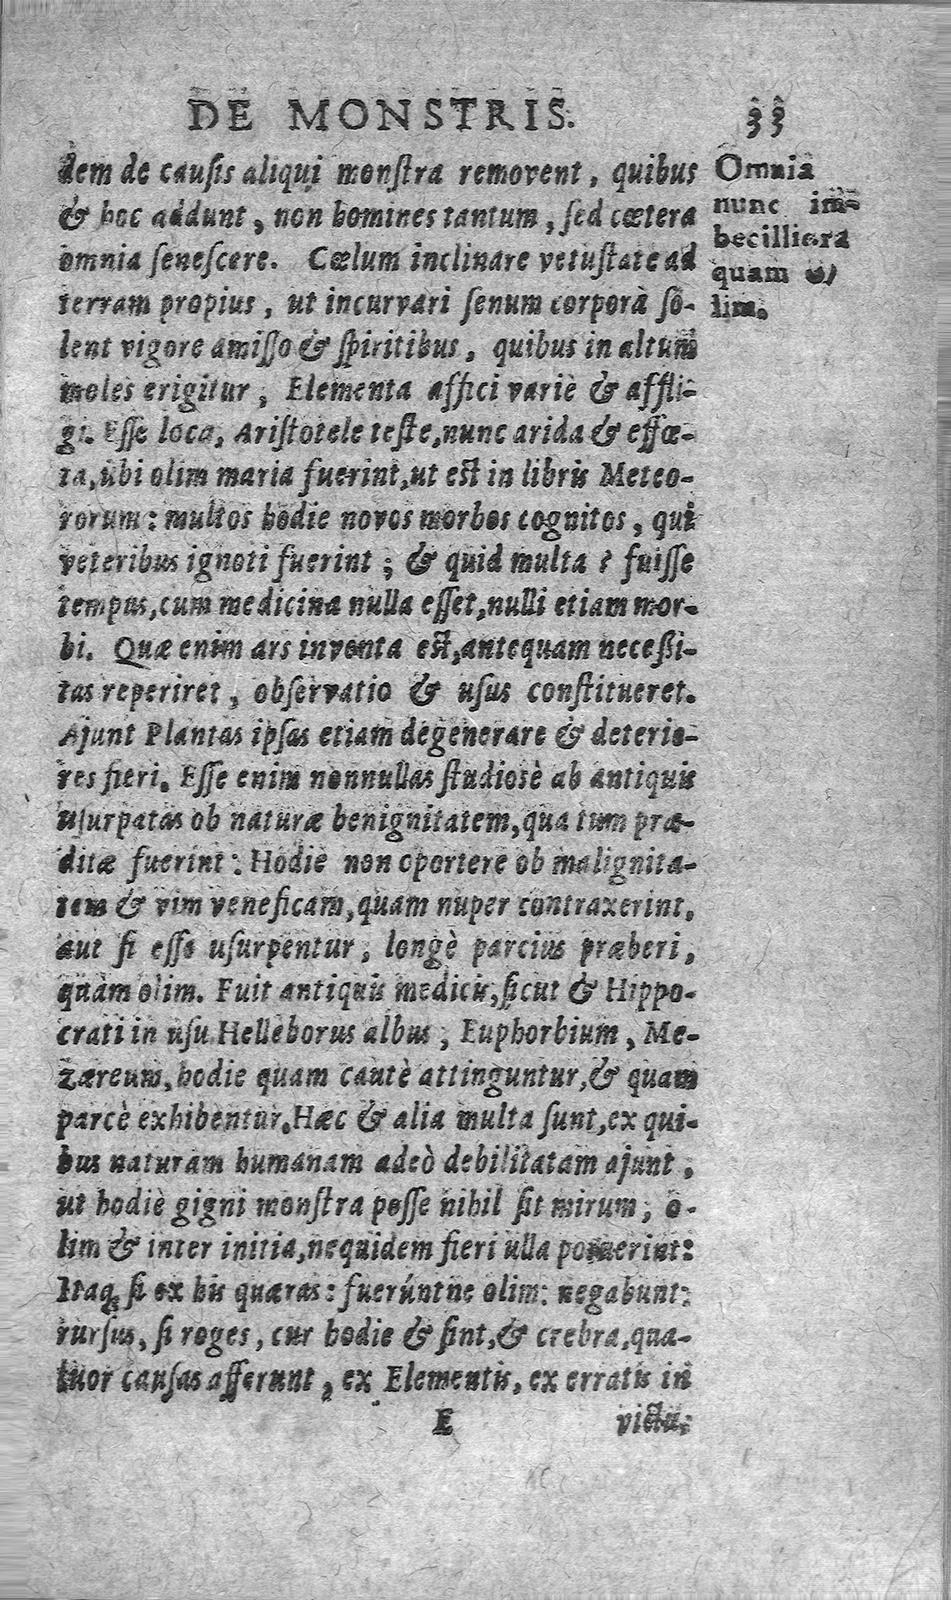 DE MONSTRIS. 33
dem de causis aliqui monstra removent, quibus
& hoc addunt, non homines tantum, sed cœtera
omnia senescere. Cœlum inclinare vetustate ad
terram propius, ut incurvari senum corpora so-
lent vigore amisso & spiritibus, quibus in altum
moles erigitur, Elementa affici variè & affli-
gi. Esse loca, Aristotele teste, nunc arida & effœ-
ta, ubi olim maria fuerint, ut est in libris Meteo-
rorum: multos hodie novos morbos cognitos, qui
veteribus ignoti fuerint; & quid multa? fuisse
tempus, cum medicina nulla esset, nulli etiam mor-
bi. Quæ enim ars inventa est, antequam necessi-
tas reperiret, observatio & usus constitueret.
Ajunt Plantas ipsas etiam degenerare & deterio-
res fieri. Esse enim nonnullas studiosè ab antiquis
usurpatas ob naturæ benignitatem, qua tum præ-
ditæ fuerint: Hodiè non oportere ob malignita-
tem & vim veneficam, quam nuper contraxerint,
aut si esse usurpentur, longè parcius præberi,
quàm olim. Fuit antiquis medicis, sicut & Hippo-
crati in usu Helleborus albus, Euphorbium, Me-
zæreum, hodie quam cautè attinguntur, & quam
parcè exhibentur. Hæc & alia multa sunt, ex qui-
bus naturam humanam adeò debilitatam ajunt,
ut hodiè gigni monstra posse nihil sit mirum, o-
lim & inter initia, nequidem fieri ulla potuerint:
Itaq; si ex his quæras: fuerúntne olim: negabunt:
rursus, si roges, cur hodie & sint, & crebra, qua-
tuor causas afferunt, ex Elementis, ex erratis in
E victu,
Omnia
nunc im-
becilliora
quam o-
lim.